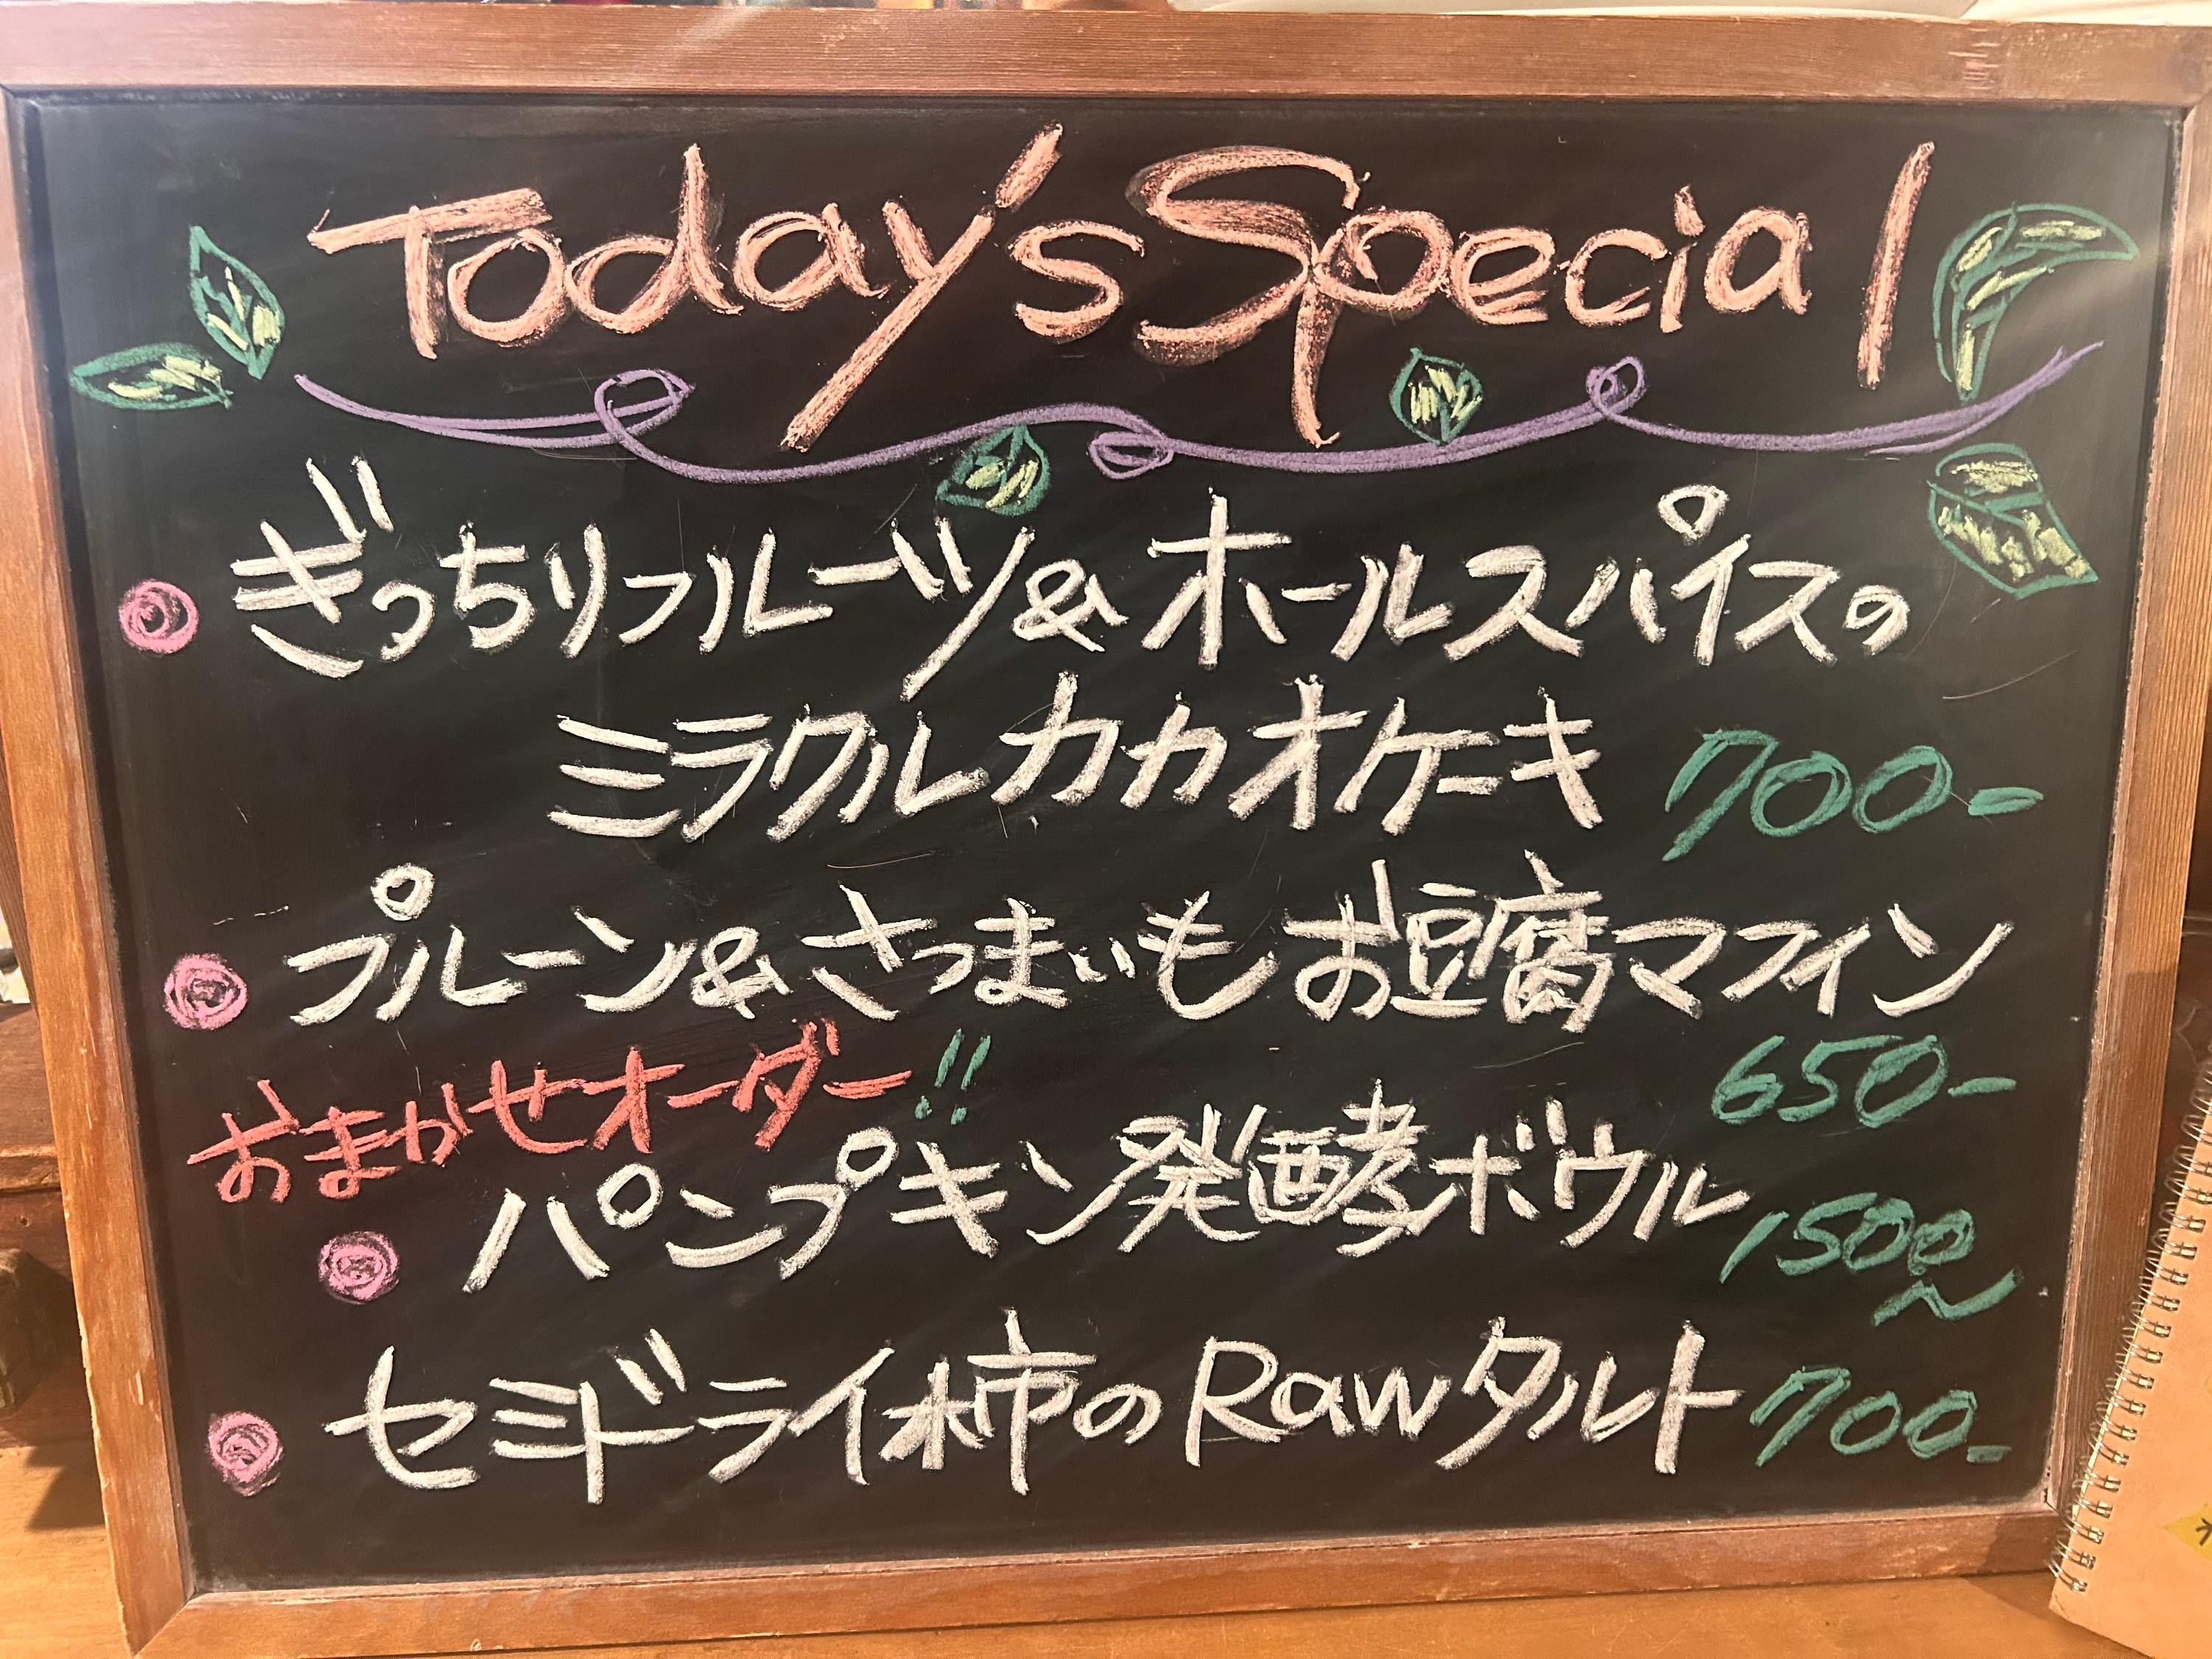 Today's Special
ぎっちりフルーツ&ホールスパイスの
ミラクルカカオケーキ 700-
プルーン&さつまいもお豆腐マフィン
650-
おまかせオーダー!!
パンプキン発酵ボウル 1500~
セミドライ柿のRawタルト 700-